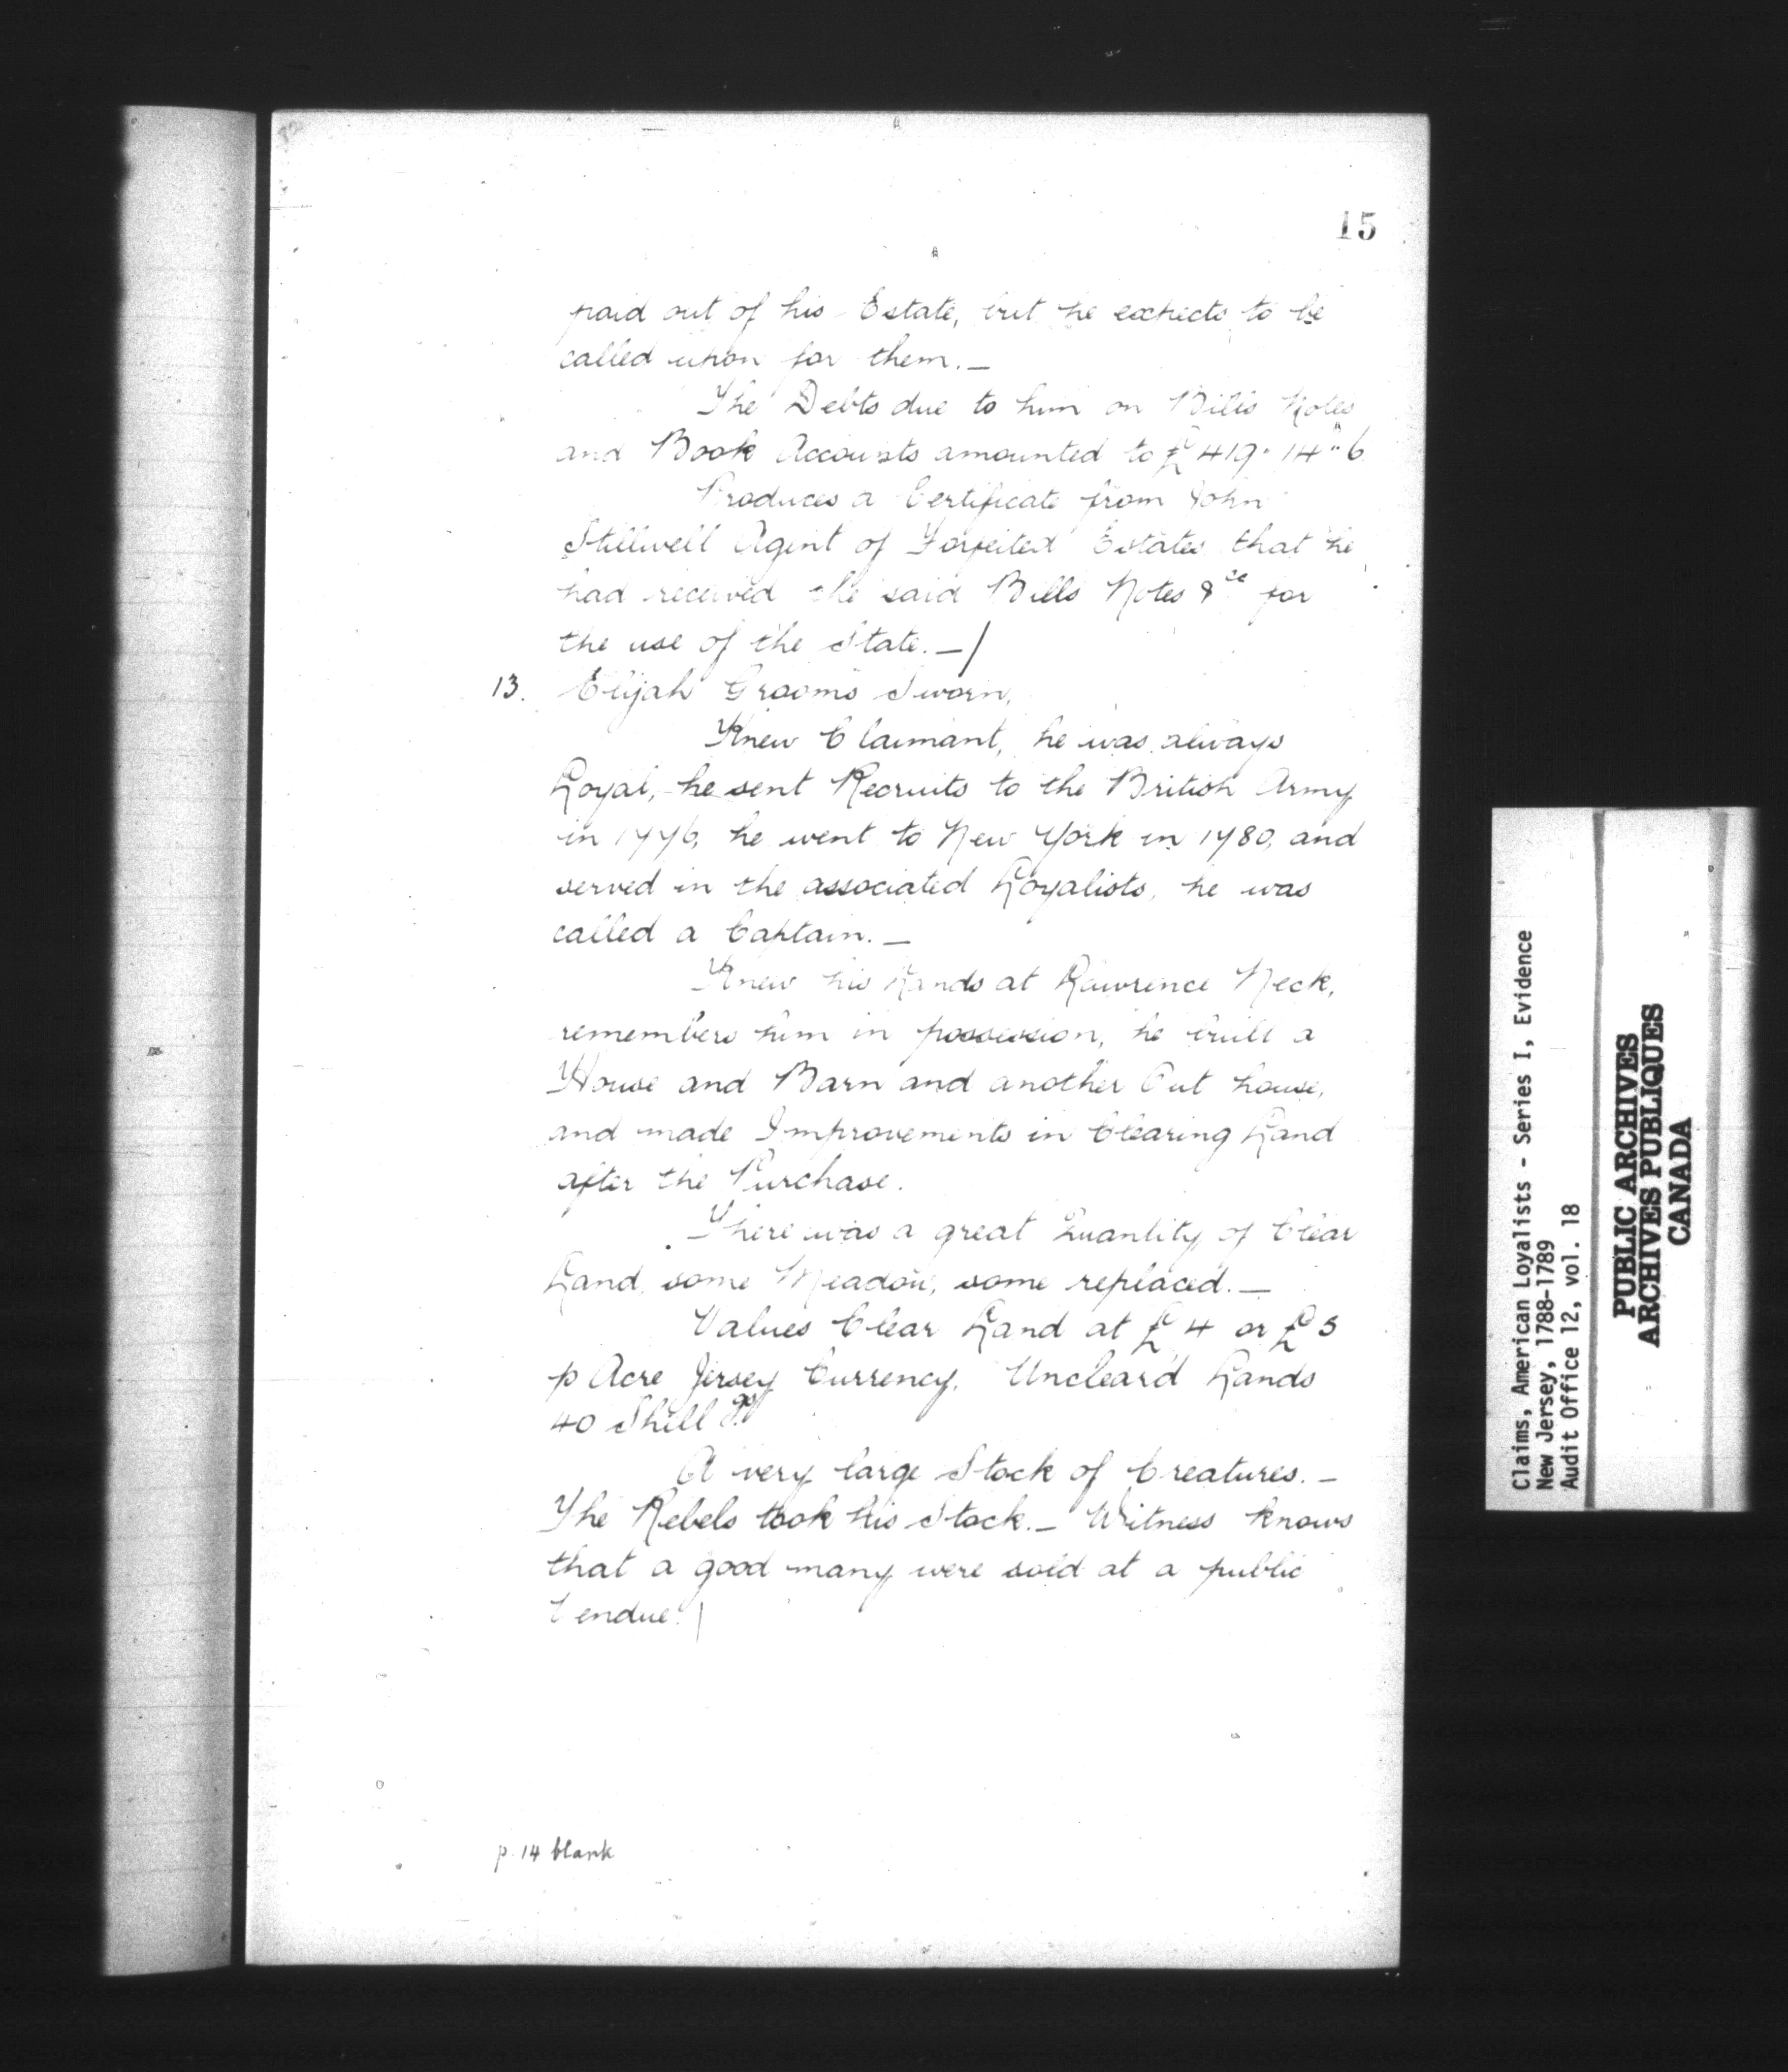 15
paid out of his Estate, but he expects to be
called upon for them. _
The Debts due to him on Bills Notes
and Book Accounts amounted to £419" 14" 6
Produces a Certificate from John
Stillwell Agent of Forfeited Estates that he
had received the said Bills Notes &ca for
the use of the State. _/
13. Elijah Grooms Sworn,
Knew Claimant, he was always
Loyal, he sent Recruits to the British Army
in 1776, he went to New York in 1780, and
served in the associated Loyalists, he was
called a Captain. _
Knew his Lands at Lawrence Neck,
remembers him in possession, he built a
House and Barn and another Out house,
and made Improvements in Clearing Land
after the Purchase.
There was a great Quantity of Clear
Land, some Meadow, some replaced. _
Values Clear Land at £4 or £5
p Acre Jersey Currency. Unclear'd Lands
40 Shill
A very large Stock of Creatures. _
The Rebels took his Stock. _ Witness knows
that a good many were sold at a public
Vendue. /
p. 14 blank
Claims, American Loyalists - Series I, Evidence
New Jersey, 1788-1789
Audit Office 12, vol. 18
PUBLIC ARCHIVES
ARCHIVES PUBLIQUES
CANADA